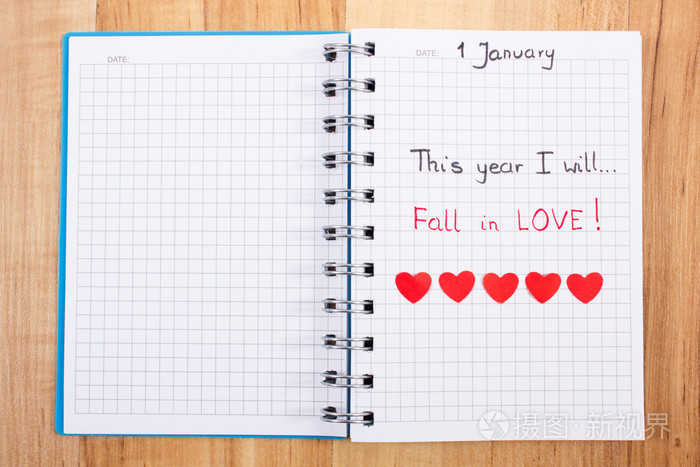 DATE:
DATE: 1 January
This year I will...
Fall in LOVE!
摄图·新视界